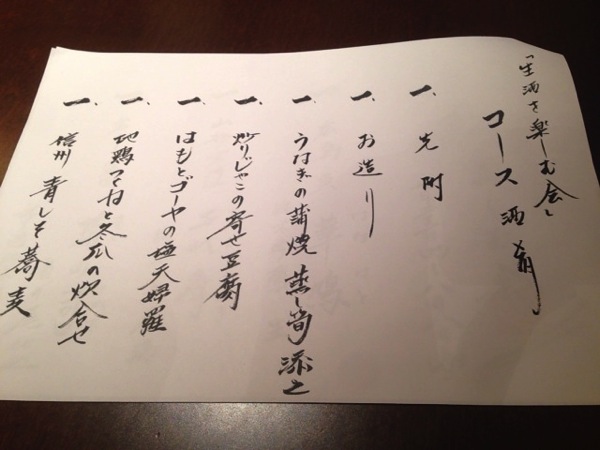 「生酒を楽しむ会」
コース 酒肴
一、先附
一、お造り
一、うなぎの蒲焼 蒸し筍添え
一、炒りじゃこの寄せ豆腐
一、はもとゴーヤの塩天婦羅
一、地鶏つくねと冬瓜の炊合せ
一、信州 青しそ蕎麦